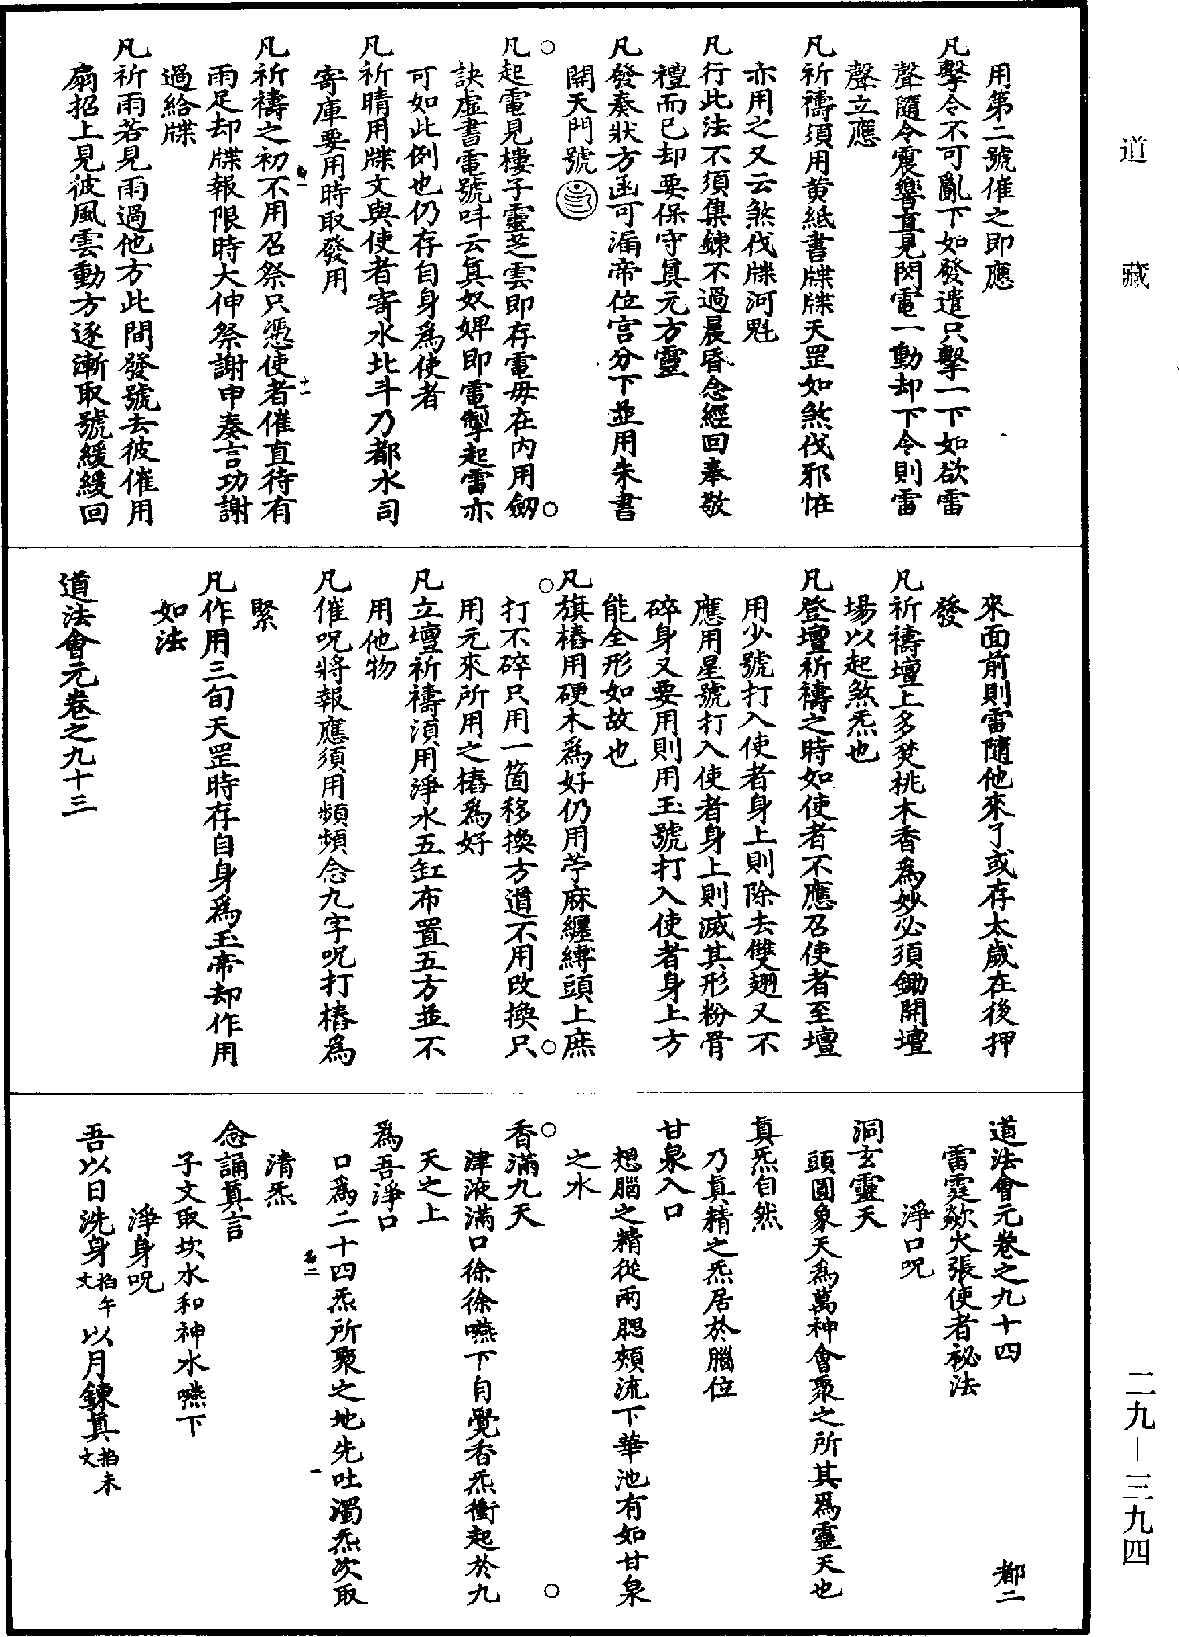 道藏
用第二號催之即應
凡擊令不可亂下如發遣只擊一下如欲雷
聲隨令震響直見閃電一動却下令則雷
聲立應
凡祈禱須用黄紙書牒牒天罡如煞伐邪恠
亦用之又云煞伐牒河魁
凡行此法不須集鍊不過晨昏念經回奉敬
禮而已却要保守真元方靈
凡發奏狀方函可漏帝位宫分下並用朱書
開天門號
凡起電見樓子靈芝雲即存電毋在内用劒
訣虚書電號呌云真奴婢即電掣起雷亦
可如此例也仍存自身為使者
凡祈晴用牒文與使者寄水北斗乃都水司
寄庫要用時取發用
凡祈禱之初不用召祭只憑使者催直待有
雨足却牒報限時大伸祭謝申奏言功謝
過給牒
凡祈雨若見雨過他方此間發號去彼催用
扇招上見彼風雲動方逐漸取號緩緩回
來面前則雷隨他來了或存太歲在後押
發
凡祈禱壇上多焚桃木香為妙必須鋤開壇
場以起煞炁也
凡登壇祈禱之時如使者不應召使者至壇
用少號打入使者身上則除去雙翅又不
應用星號打入使者身上則滅其形粉骨
碎身又要用則用玉號打入使者身上方
能全形如故也
凡旗樁用硬木為好仍用苧麻纏縛頭上庶
打不碎只用一箇移換方道不用改換只
用元來所用之樁為好
凡立壇祈禱湏用淨水五缸布置五方並不
用他物
凡催呪將報應須用頻頻念九字呪打樁為
緊
凡作用三旬天罡時存自身為玉帝却作用
如法
道法會元卷之九十三
道法會元卷之九十四 都二
雷霆歘火張使者祕法
淨口呪
洞玄靈天
頭圓象天為萬神會聚之所其為靈天也
真炁自然
乃真精之炁居於腦位
甘泉入口
想腦之精從兩腮頰流下華池有如甘泉
之水
香滿九天
津液滿口徐徐嚥下自覺香炁衝起於九
天之上
為吾淨口
口為二十四炁所聚之地先吐濁炁次取
清炁
念誦真言
子文取坎水和神水嚥下
淨身呪
吾以日洗身掐午文以月鍊真掐未文
二九—三九四